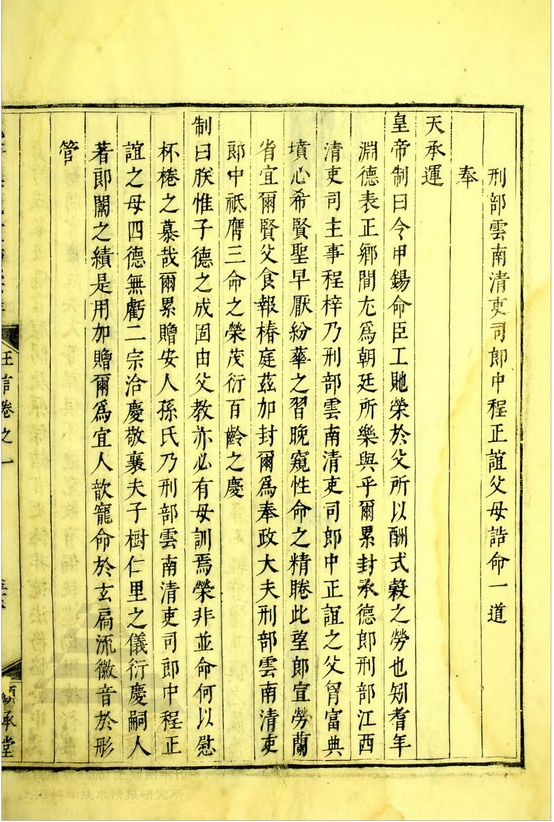 刑部雲南清吏司郎中程正誼父母誥命一道
奉
天承運
皇帝制曰令甲錫命臣工貤榮於父所以酬式穀之勞也矧耆年
淵德表正鄉閭尤爲朝廷所樂與乎爾累封承德郎刑部江西
清吏司主事程梓乃刑部雲南清吏司郎中正誼之父胷富典
墳心希賢聖早厭紛華之習晚窺性命之精睠此望郎宜勞蘭
省宜爾賢父食報椿庭茲加封爾爲奉政大夫刑部雲南清吏
郎中祇膺三命之榮茂衍百齡之慶
制曰朕惟子德之成固由父教亦必有母訓焉榮非並命何以慰
杯棬之慕哉爾累贈安人孫氏乃刑部雲南清吏司郎中程正
誼之母四德無虧二宗洽慶敬襄夫子樹仁里之儀衍慶嗣人
著郎闈之績是用加贈爾爲宜人歆寵命於玄扃流徽音於彤
管
王言卷之一
承堂
上海科学技术情报研究所